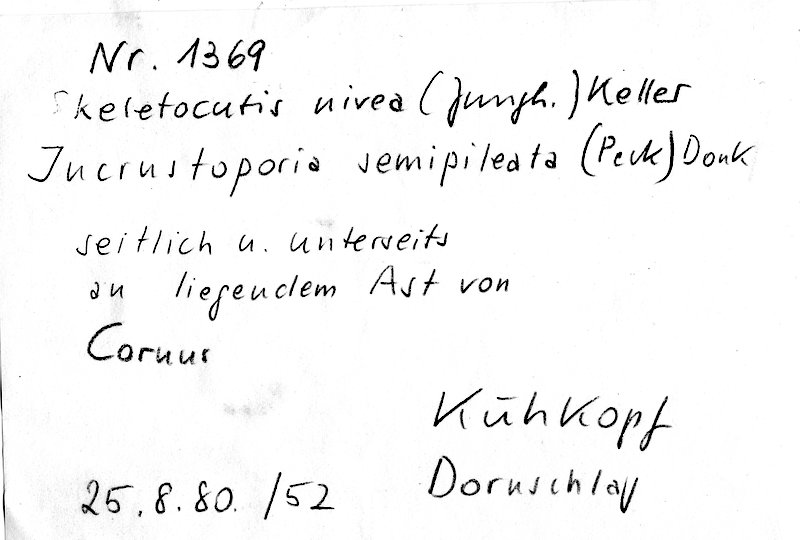 Nr. 1369
Skeletocutis nivea (Jungh.) Keller
Incrustoporia semipileata (Peck) Donk
seitlich u. unterseits
an liegendem Ast von
Cornus
Kühkopf
Dornschlag
25.8.80. /52